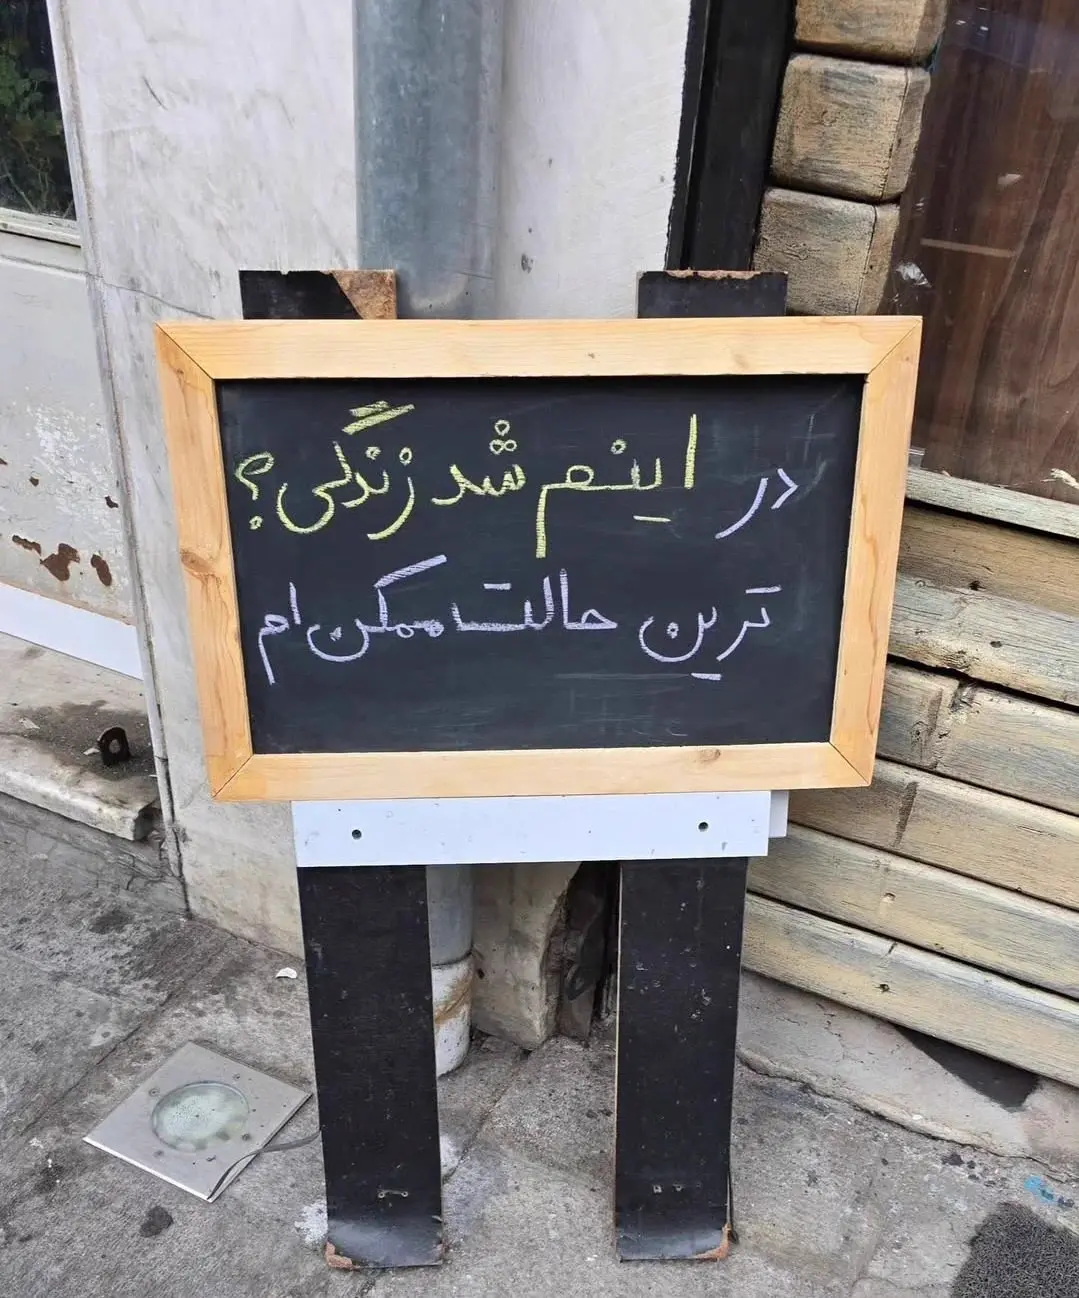 در اینم شد زندگی؟
ترین حالت ممکن ام